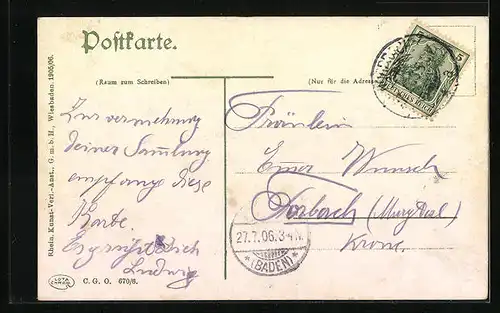 Postkarte.
(Raum zum Schreiben)
(Nur für die Adresse
5
DEUTSCHES REICH
Zur vermehrung
deiner Sammlung
empfange diese
Karte.
Es grüßt Dich
Ludwig
Fräulein
Emer Wunsch
Forbach (Murgthal)
Krone
27.7.06. 3-4 N.
*(BADEN)*
Rhein. Kunst-Verl.-Anst., G. m. b. H., Wiesbaden 1905/06.
C. G. O. 670/6.